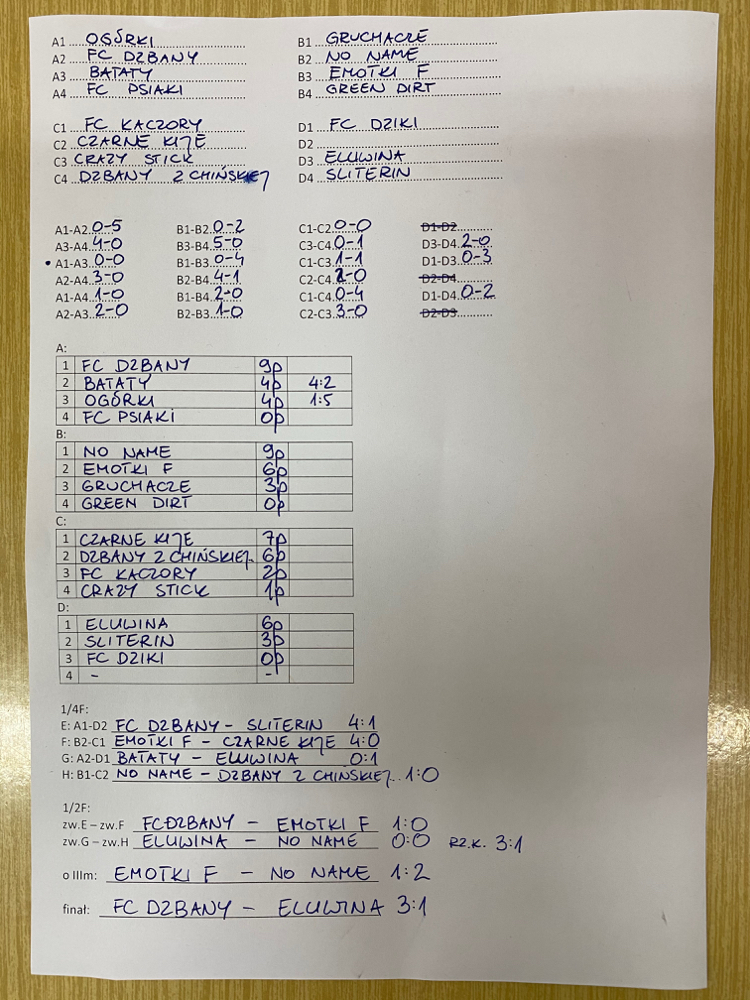 A1 OGÓRKI
A2 FC DZBANY
A3 BATATY
A4 FC PSIAKI
B1 GRUCHACZE
B2 NO NAME
B3 EMOTKI F
B4 GREEN DIRT
C1 FC KACZORY
C2 CZARNE KIJE
C3 CRAZY STICK
C4 DZBANY Z CHIŃSKIEJ
D1 FC DZIKI
D2
D3 ELUWINA
D4 SLITERIN
A1-A2 0-5
A3-A4 4-0
• A1-A3 0-0
A2-A4 3-0
A1-A4 1-0
A2-A3 2-0
B1-B2 0-2
B3-B4 5-0
B1-B3 0-4
B2-B4 4-1
B1-B4 2-0
B2-B3 1-0
C1-C2 0-0
C3-C4 0-1
C1-C3 1-1
C2-C4 2-0
C1-C4 0-4
C2-C3 3-0
D1-D2
D3-D4 2-0
D1-D3 0-3
D2-D4
D1-D4 0-2
D2-D3
A:
1 FC DZBANY 9p
2 BATATY 4p 4:2
3 OGÓRKI 4p 1:5
4 FC PSIAKI 0p
B:
1 NO NAME 9p
2 EMOTKI F 6p
3 GRUCHACZE 3p
4 GREEN DIRT 0p
C:
1 CZARNE KIJE 7p
2 DZBANY Z CHIŃSKIEJ 6p
3 FC KACZORY 2p
4 CRAZY STICK 1p
D:
1 ELUWINA 6p
2 SLITERIN 3p
3 FC DZIKI 0p
4 - -
1/4F:
E: A1-D2 FC DZBANY - SLITERIN 4:1
F: B2-C1 EMOTKI F - CZARNE KIJE 4:0
G: A2-D1 BATATY - ELUWINA 0:1
H: B1-C2 NO NAME - DZBANY Z CHIŃSKIEJ 1:0
1/2F:
zw.E – zw.F FC DZBANY - EMOTKI F 1:0
zw.G – zw.H ELUWINA - NO NAME 0:0 RZ.K. 3:1
o IIIm: EMOTKI F - NO NAME 1:2
finał: FC DZBANY - ELUWINA 3:1